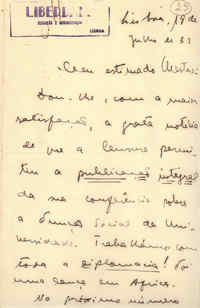 LIBERD
LISBOA
25
Lisboa, 19 de
Julho de 31
Meu estimado Mestre:
Dou-lhe, com a maior
satisfação, a grata notícia
de que a Censura permi-
tiu a publicação integral
da sua conferência sobre
a Função Social da Uni-
versidade. Trabalhámos com
toda a diplomacia! Foi
uma lança em Africa.
No próximo número